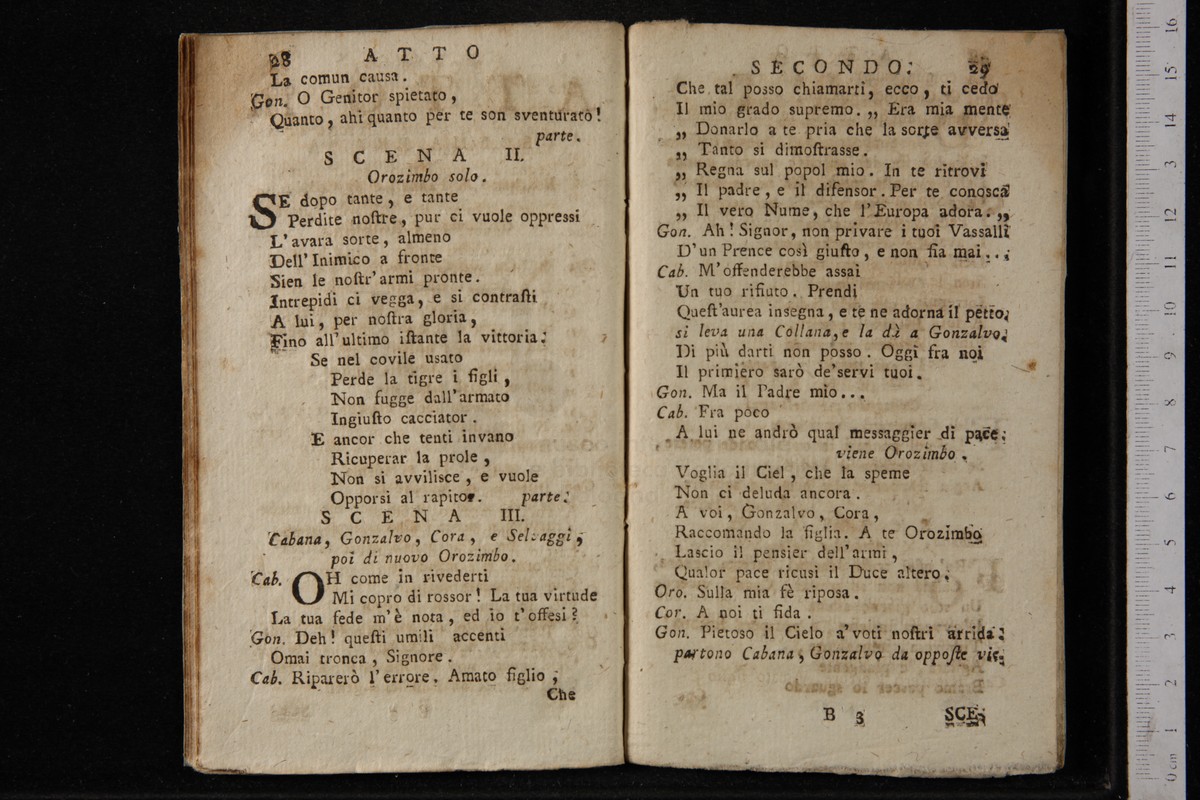 28 ATTO
La comun causa.
Gon. O Genitor spietato,
Quanto, ahi quanto per te son sventurato!
parte.
SCENA II.
Orozimbo solo.
SE dopo tante, e tante
Perdite noſtre, pur ci vuole oppressi
L'avara sorte, almeno
Dell'Inimico a fronte
Sien le noſtr'armi pronte.
Intrepidi ci vegga, e si contraſti
A lui, per noſtra gloria,
Fino all'ultimo iſtante la vittoria.
Se nel covile usato
Perde la tigre i figli,
Non fugge dall'armato
Ingiuſto cacciator.
E ancor che tenti invano
Ricuperar la prole,
Non si avvilisce, e vuole
Opporsi al rapitor. parte.
SCENA III.
Cabana, Gonzalvo, Cora, e Selvaggi,
poi di nuovo Orozimbo.
Cab. OH come in rivederti
Mi copro di rossor! La tua virtude
La tua fede m'è nota, ed io t'offesi?
Gon. Deh! queſti umili accenti
Omai tronca, Signore.
Cab. Riparerò l'errore. Amato figlio,
Che
SECONDO. 29
Che tal posso chiamarti, ecco, ti cedo
Il mio grado supremo. „ Era mia mente
„ Donarlo a te pria che la sorte avversa
„ Tanto si dimoſtrasse.
„ Regna sul popol mio. In te ritrovi
„ Il padre, e il difensor. Per te conosca
„ Il vero Nume, che l'Europa adora. „
Gon. Ah! Signor, non privare i tuoi Vassalli
D'un Prence così giuſto, e non fia mai...
Cab. M'offenderebbe assai
Un tuo rifiuto. Prendi
Queſt'aurea insegna, e te ne adorna il petto,
si leva una Collana, e la dà a Gonzalvo.
Di più darti non posso. Oggi fra noi
Il primiero sarò de'servi tuoi.
Gon. Ma il Padre mio...
Cab. Fra poco
A lui ne andrò qual messaggier di pace.
viene Orozimbo.
Voglia il Ciel, che la speme
Non ci deluda ancora.
A voi, Gonzalvo, Cora,
Raccomando la figlia. A te Orozimbo
Lascio il pensier dell'armi,
Qualor pace ricusi il Duce altero.
Oro. Sulla mia fè riposa.
Cor. A noi ti fida.
Gon. Pietoso il Cielo a'voti noſtri arrida.
partono Cabana, Gonzalvo da oppoſte vie.
B 3 SCE-
0 cm 1 2 3 4 5 6 7 8 9 10 11 12 13 14 15 16